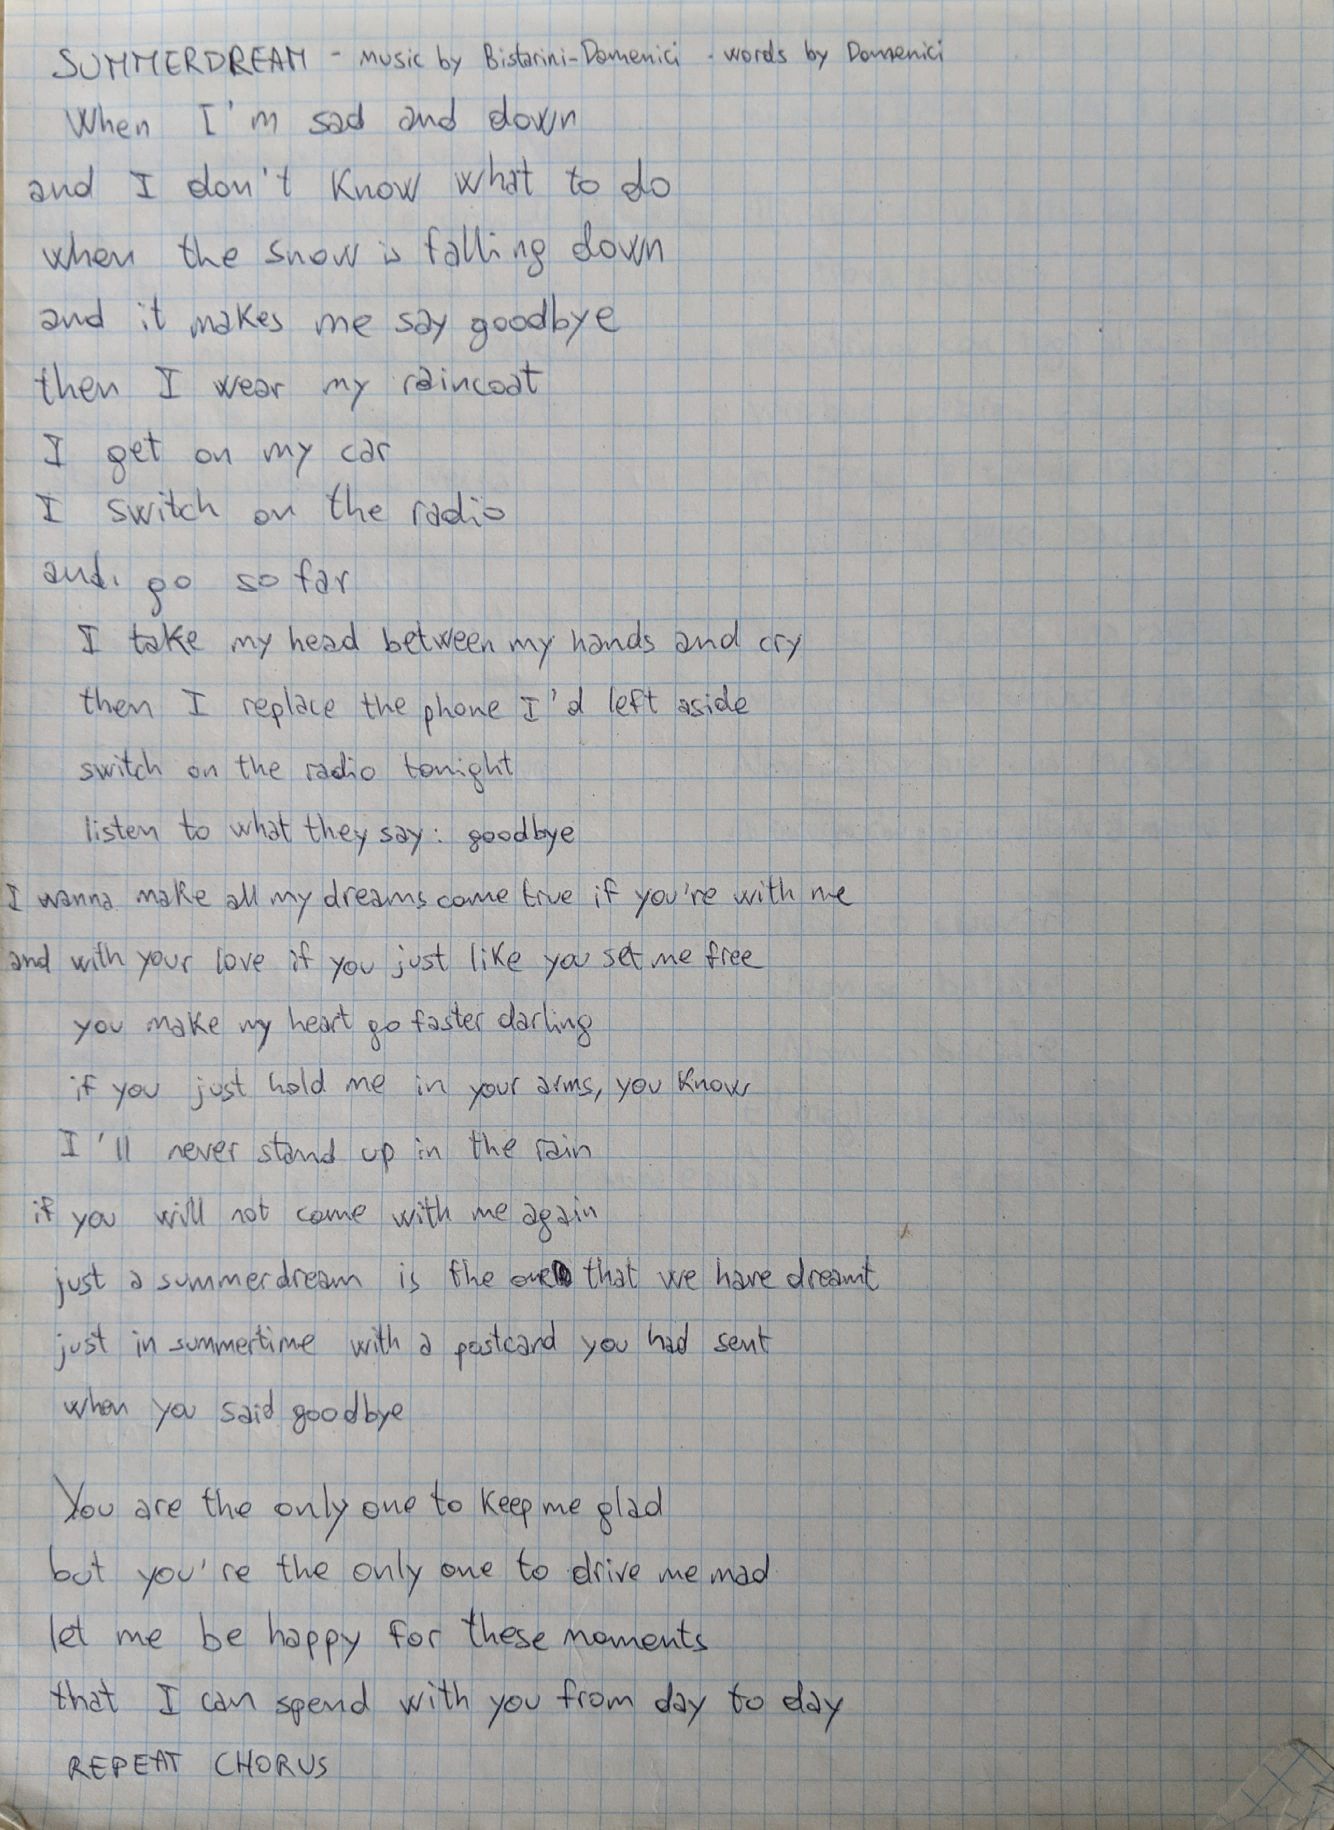 SUMMERDREAM - music by Bistarini-Domenici - words by Domenici
When I'm sad and down
and I don't know what to do
when the snow is falling down
and it makes me say goodbye
then I wear my raincoat
I get on my car
I switch on the radio
and go so far
I take my head between my hands and cry
then I replace the phone I'd left aside
switch on the radio tonight
listen to what they say: goodbye
I wanna make all my dreams come true if you're with me
and with your love if you just like you set me free
you make my heart go faster darling
if you just hold me in your arms, you know
I'll never stand up in the rain
if you will not come with me again
just a summerdream is the one that we have dreamt
just in summertime with a postcard you had sent
when you said goodbye
You are the only one to keep me glad
but you're the only one to drive me mad
let me be happy for these moments
that I can spend with you from day to day
REPEAT CHORUS